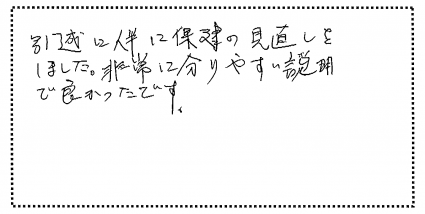 引越に伴に保険の見直しを
しました。非常に分りやすい説明
で良かったです。